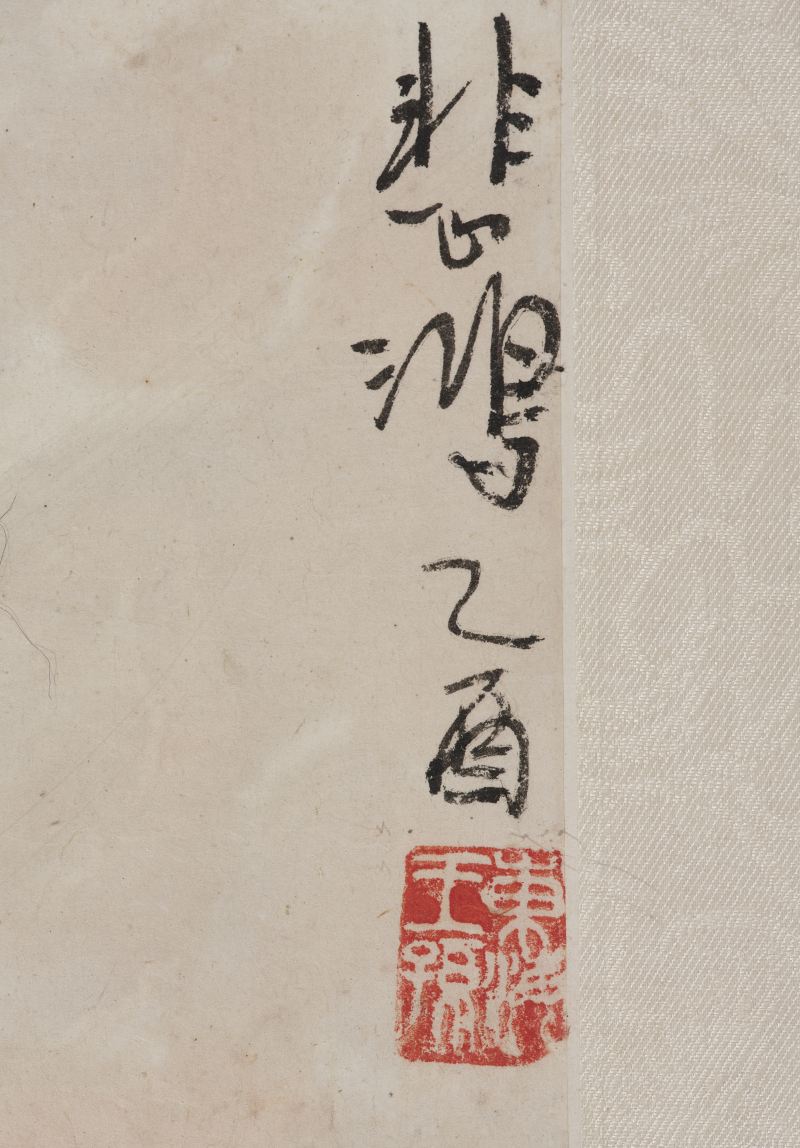 悲鴻乙酉
東海
王孫